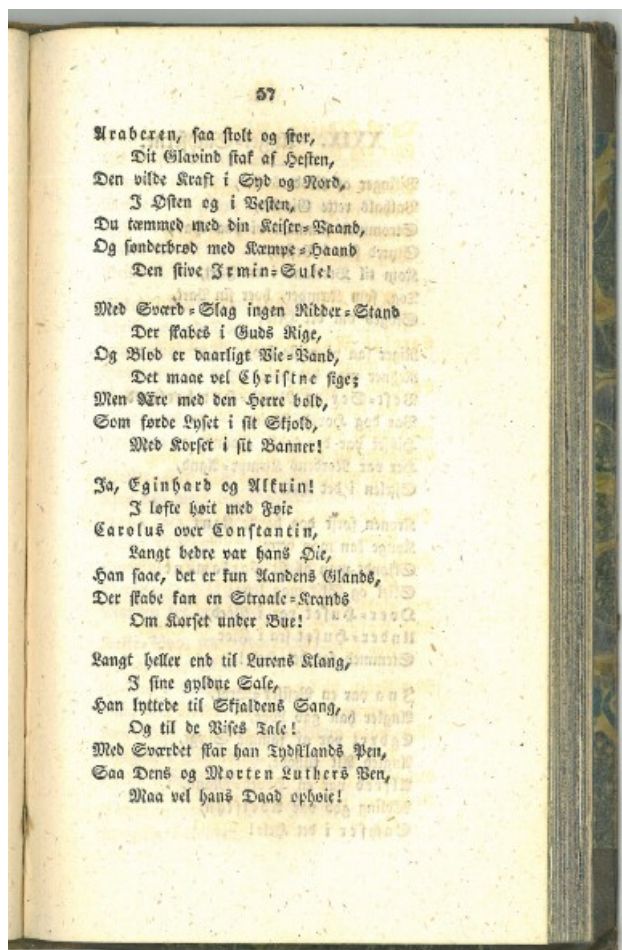 57
Araberen, saa stolt og stor,
Dit Glavind stak af Hesten,
Den vilde Kraft i Syd og Nord,
I Østen og i Vesten,
Du tæmmed med din Keiser-Vaand,
Og sønderbrød med Kæmpe-Haand
Den stive Irmin-Sule!
Med Sværd-Slag ingen Ridder-Stand
Der skabes i Guds Rige,
Og Blod er daarligt Vie-Vand,
Det maae vel Christne sige;
Men Ære med den Herre bold,
Som førde Lyset i sit Skjold,
Med Korset i sit Banner!
Ja, Eginhard og Alkuin!
I løfte høit med Føie
Carolus over Constantin,
Langt bedre var hans Øie,
Han saae, det er kun Aandens Glands,
Der skabe kan en Straale-Krands
Om Korset under Bue!
Langt heller end til Lurens Klang,
I sine gyldne Sale,
Han lyttede til Skjaldens Sang,
Og til de Vises Tale!
Med Sværdet skar han Tydsklands Pen,
Saa Dens og Morten Luthers Ven,
Maa vel hans Daad ophøie!